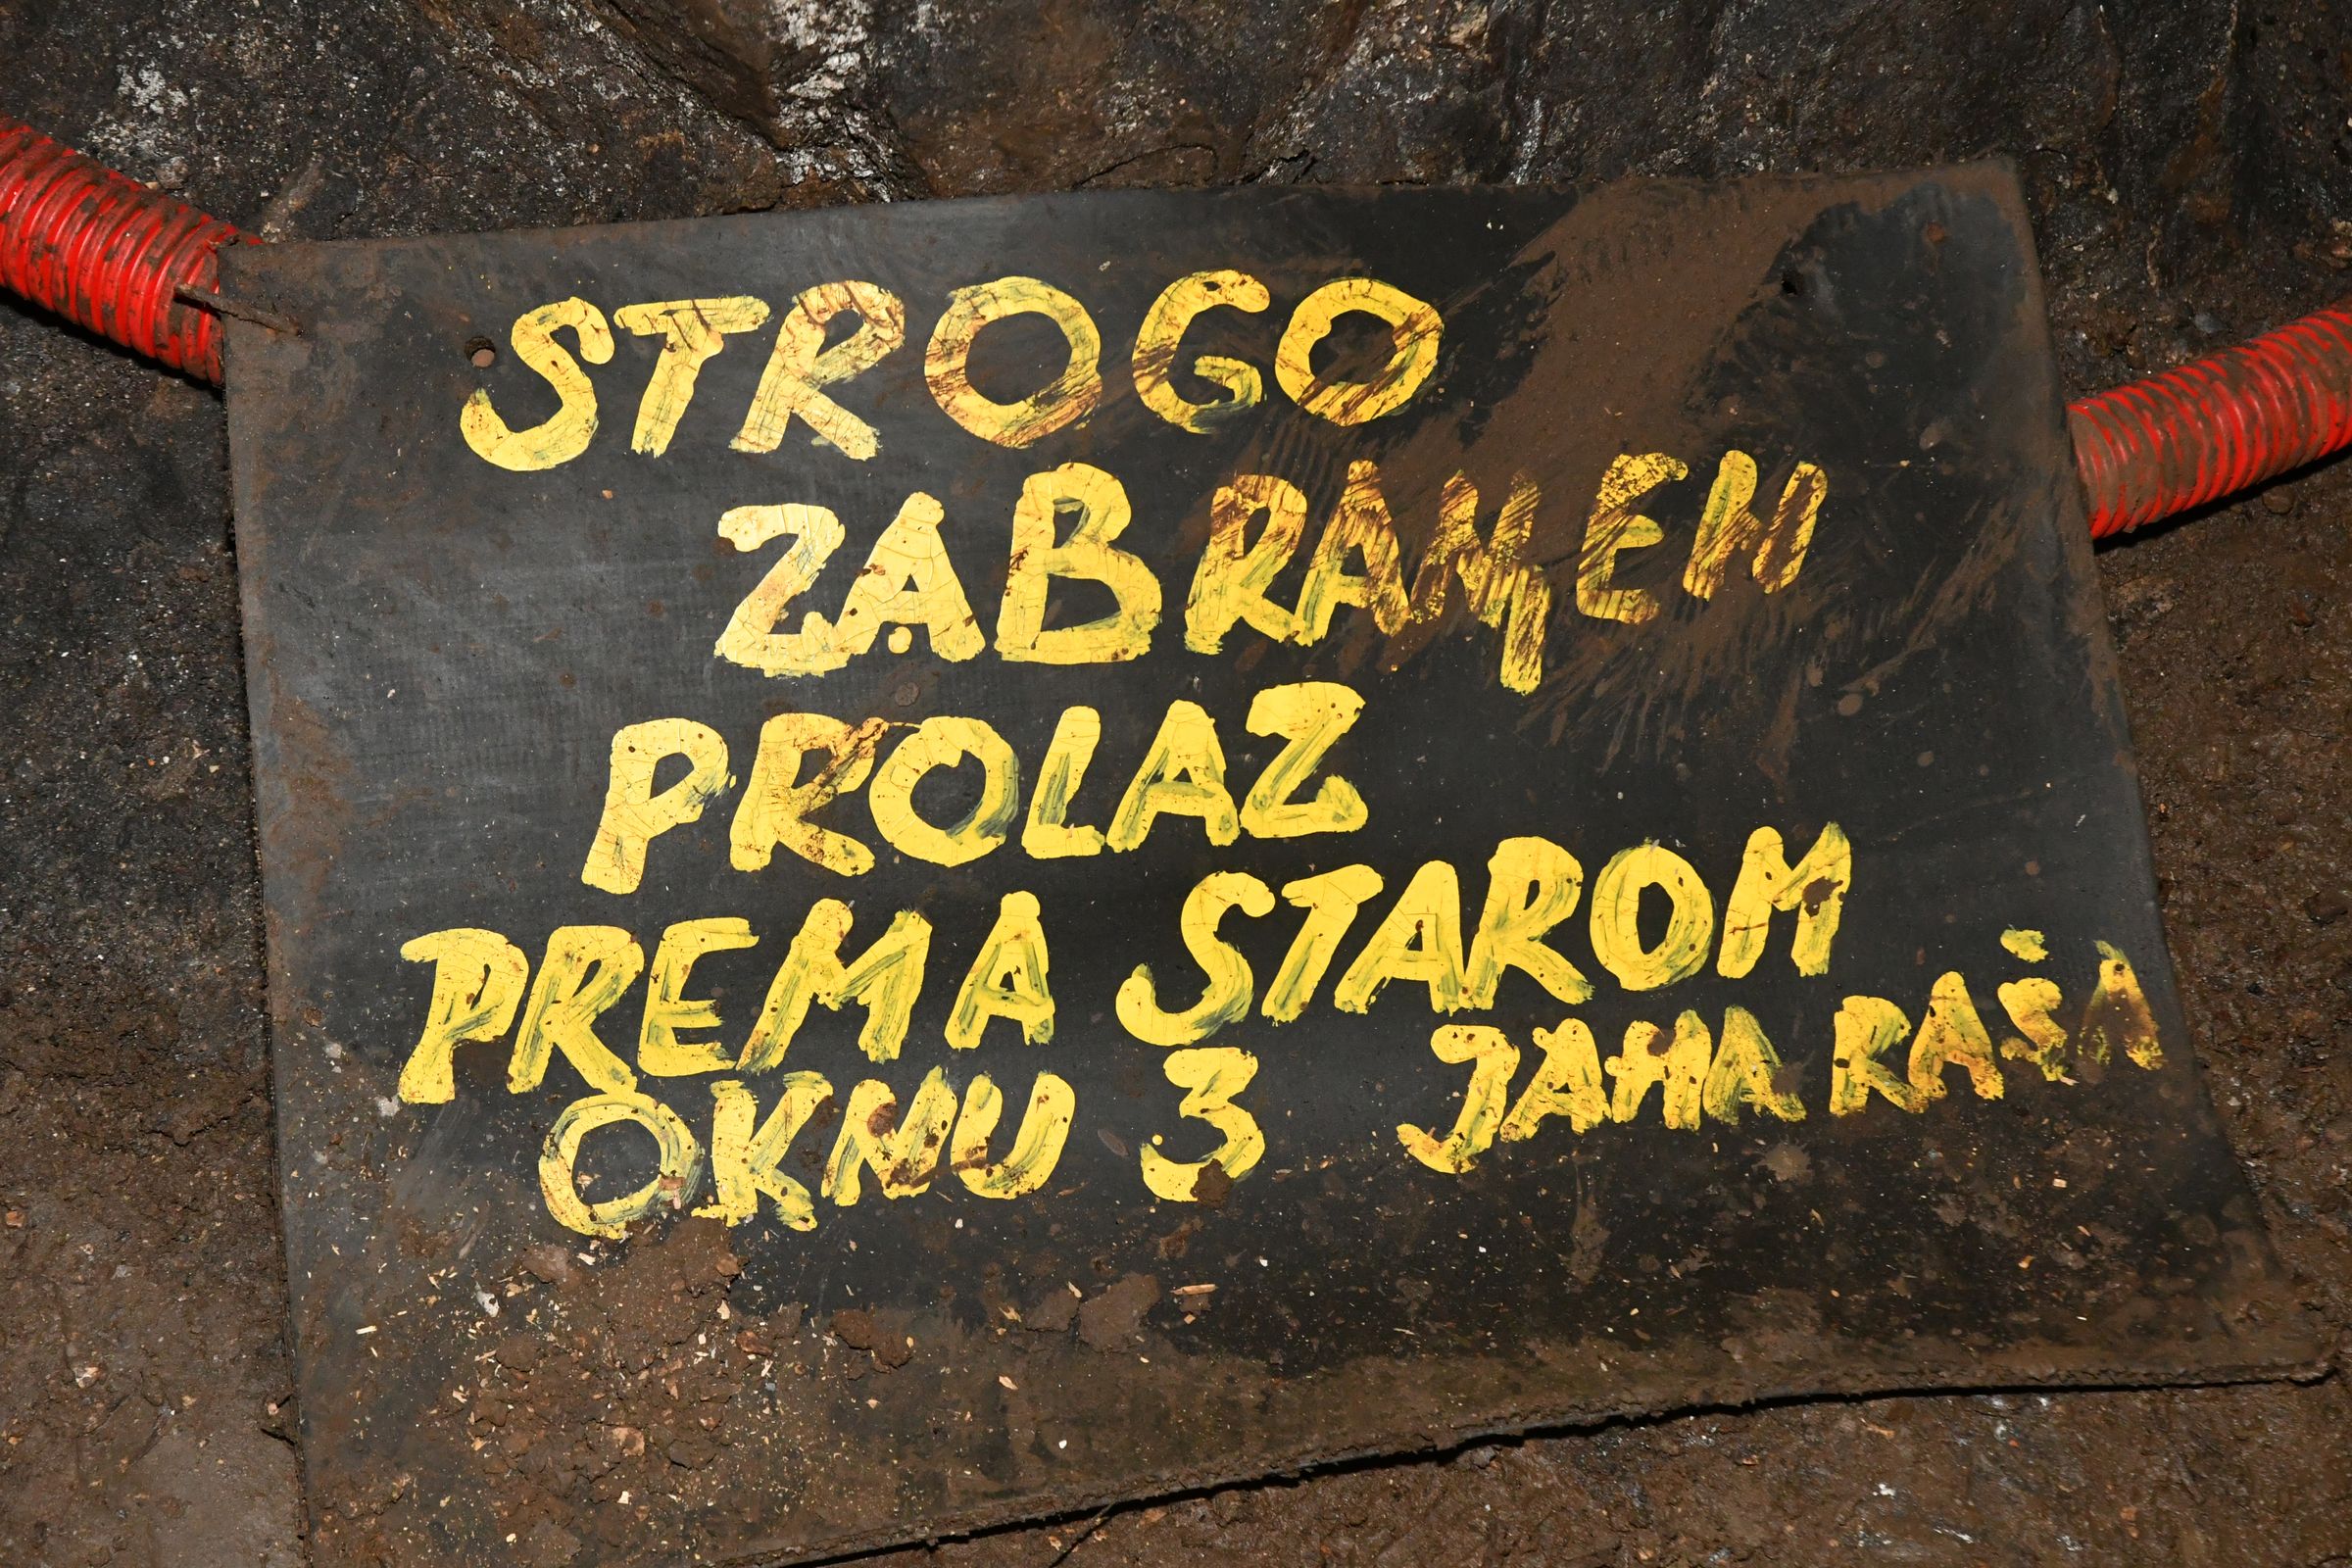 STROGO
ZABRANJEN
PROLAZ
PREMA STAROM
OKNU 3 JAMA RAŠA